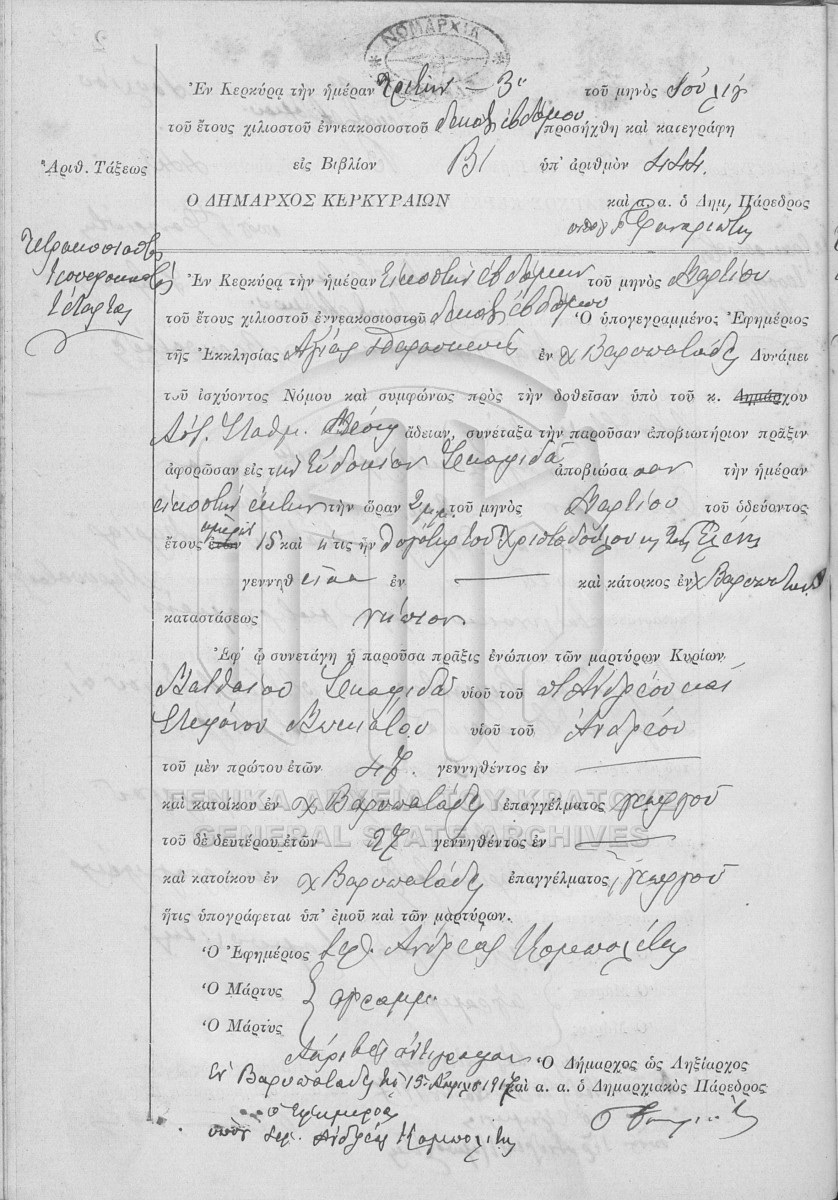 ΝΟΜΑΡΧΙΑ
Ἐν Κερκύρᾳ τὴν ἡμέραν τρίτην 3ην τοῦ μηνὸς Ἰουλίου
τοῦ ἔτους χιλιοστοῦ ἐννεακοσιοστοῦ δεκάτου ἑβδόμου προσήχθη καὶ κατεγράφη
Ἀριθ. Τάξεως
εἰς Βιβλίον Β1 ὑπ' ἀριθμὸν 444.
Ο ΔΗΜΑΡΧΟΣ ΚΕΡΚΥΡΑΙΩΝ καὶ α. α. ὁ Δημ. Πάρεδρος
Τετρακοσιοστὴ
τεσσαρακοστὴ
τετάρτη
Ἐν Κερκύρᾳ τὴν ἡμέραν εἰκοστὴν ἑβδόμην τοῦ μηνὸς Μαρτίου
τοῦ ἔτους χιλιοστοῦ ἐννεακοσιοστοῦ δεκάτου ἑβδόμου Ὁ ὑπογεγραμμένος Ἐφημέριος
τῆς Ἐκκλησίας Ἁγίας Παρασκευῆς ἐν χ Βαρυπατάδες Δυνάμει
τοῦ ἰσχύοντος Νόμου καὶ συμφώνως πρὸς τὴν δοθεῖσαν ὑπὸ τοῦ κ. Δημάρχου
Ἀστ. Σταθμ. ἄδειαν, συνέταξα τὴν παροῦσαν ἀποβιωτήριον πρᾶξιν
ἀφορῶσαν εἰς τὴν Εὐδοκίαν Σκαφιδᾶ ἀποβιώσασαν τὴν ἡμέραν
εἰκοστὴν ἕκτην τὴν ὥραν 2 μ.μ. τοῦ μηνὸς Μαρτίου τοῦ ὁδεύοντος
ἡμερῶν
ἔτους ἐτῶν 15 καὶ ἥτις ἦν θυγάτηρ τοῦ Χριστοδούλου κ τῆς Ἑλένης
γεννηθεῖσα ἐν — καὶ κάτοικος ἐν χ Βαρυπατάδες
καταστάσεως νήπιον
Ἐφ' ᾧ συνετάγη ἡ παροῦσα πρᾶξις ἐνώπιον τῶν μαρτύρων Κυρίων
Ματθαίου Σκαφιδᾶ υἱοῦ τοῦ π Ἀνδρέου καὶ
Στεφάνου υἱοῦ τοῦ Ἀνδρέου
τοῦ μὲν πρώτου ἐτῶν 47 γεννηθέντος ἐν —
καὶ κατοίκου ἐν χ Βαρυπατάδες ἐπαγγέλματος γεωργοῦ
ΓΕΝΙΚΑ ΑΡΧΕΙΑ ΤΟΥ ΚΡΑΤΟΥΣ
GENERAL STATE ARCHIVES
τοῦ δὲ δευτέρου ἐτῶν 27 γεννηθέντος ἐν —
καὶ κατοίκου ἐν χ Βαρυπατάδες ἐπαγγέλματος γεωργοῦ
ἥτις ὑπογράφεται ὑπ' ἐμοῦ καὶ τῶν μαρτύρων.
Ὁ Ἐφημέριος Ἱερ. Ἀνδρέας Κομπολίτης
Ὁ Μάρτυς
Ὁ Μάρτυς
Ἀκριβὲς ἀντίγραφον Ὁ Δήμαρχος ὡς Ληξίαρχος
Ἐν Βαρυπατάδες τῇ 15 1917 καὶ α. α. ὁ Δημαρχιακὸς Πάρεδρος
ὁ Ἐφημέριος
Ἱερ. Ἀνδρέας Κομπολίτης